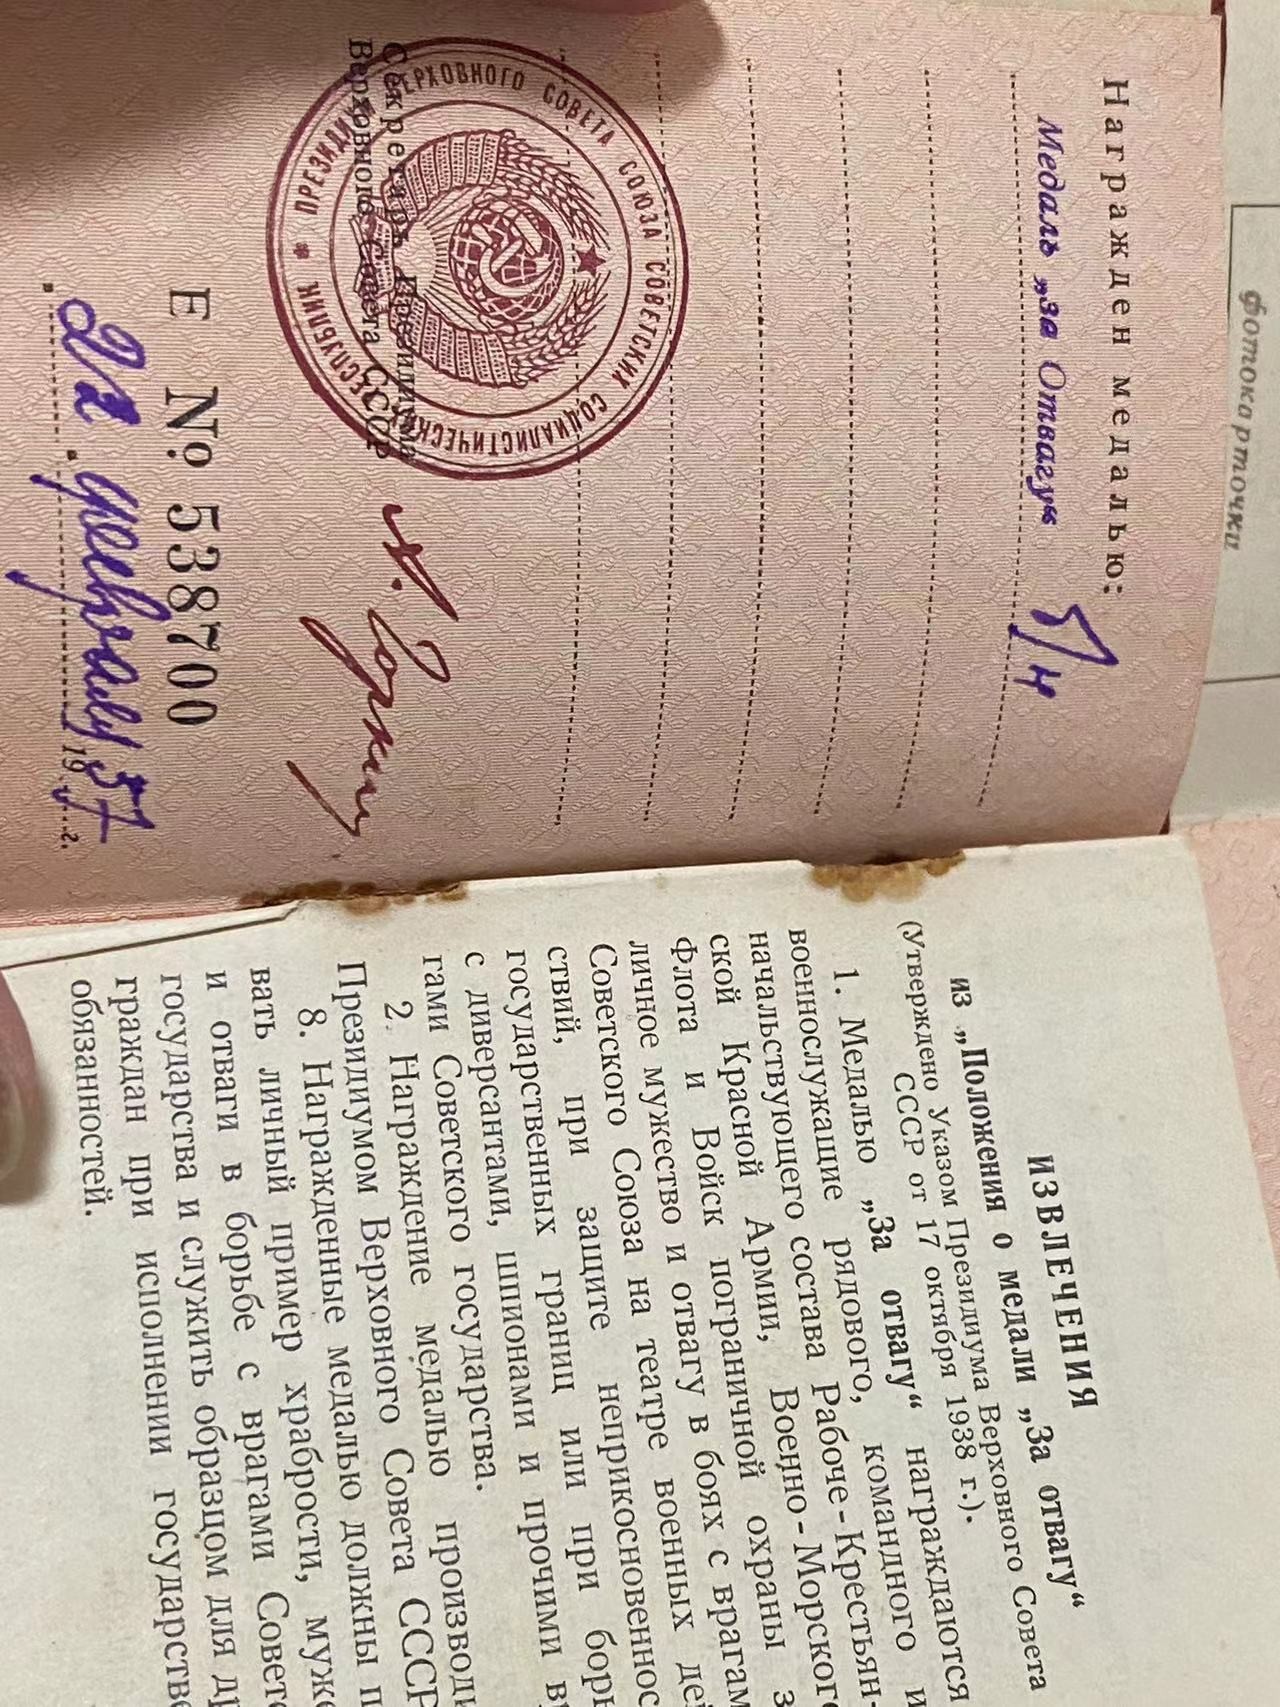 фотокарточки
Награжден медалью:
Медаль „за Отвагу“ б/н
ПРЕЗИДИУМ ВЕРХОВНОГО СОВЕТА СОЮЗА СОВЕТСКИХ СОЦИАЛИСТИЧЕСКИХ РЕСПУБЛИК *
Секретарь Президиума
Верховного Совета СССР
А. Горкин
Е № 538700
22 февраля 1957 г.
ИЗВЛЕЧЕНИЯ
из „Положения о медали „За отвагу“
(Утверждено Указом Президиума Верховного Совета
СССР от 17 октября 1938 г.).
1. Медалью „За отвагу“ награждаются
военнослужащие рядового, командного и
начальствующего состава Рабоче-Крестьян-
ской Красной Армии, Военно-Морского
Флота и Войск пограничной охраны з
личное мужество и отвагу в боях с врагам
Советского Союза на театре военных дей
ствий, при защите неприкосновеннос
государственных границ или при борь
с диверсантами, шпионами и прочими вр
гами Советского государства.
2. Награждение медалью производи
Президиумом Верховного Совета СССР
8. Награжденные медалью должны п
вать личный пример храбрости, муже
и отваги в борьбе с врагами Советс
государства и служить образцом для др
граждан при исполнении государстве
обязанностей.